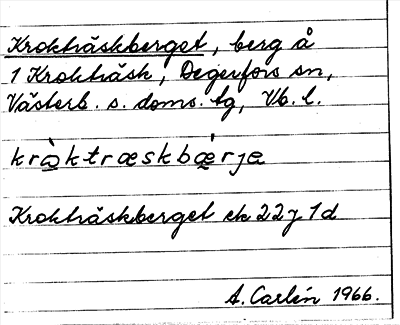 Krokträskberget, berg å
1 Krokträsk, Degerfors sn,
Västerb. s. doms. tg, Vb. l.
kràktræskbærja
Krokträskberget ek 22J 1d
A. Carlén 1966.